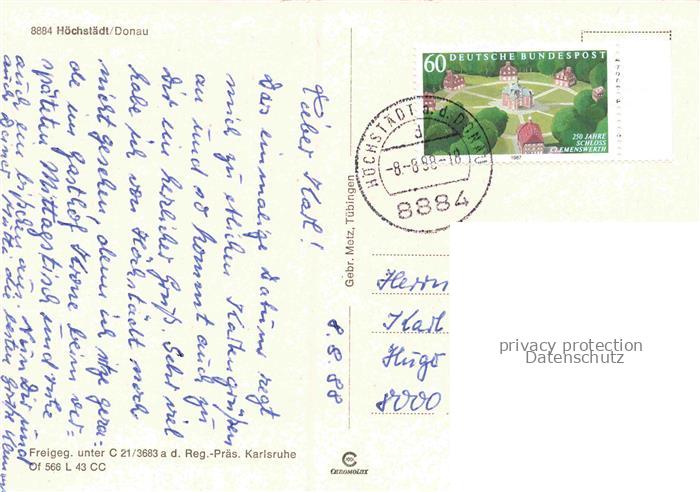 8884 Höchstädt/Donau
60 DEUTSCHE BUNDESPOST
250 JAHRE
SCHLOSS
CLEMENSWERTH
1987
HÖCHSTÄDT a. d. DONAU
a
-8.-8.88-18
8884
8.8.88
Lieber Karl!
Das einmalige Datum regt
mich zu etlichen Kartengrüßen
an und so kommt auch zu
Dir ein herzlicher Gruß. Sehr viel
habe ich von Höchstädt noch
nicht gesehen, denn ich sitze gera=
de im Gasthof Krone beim ver=
späteten Mittagstisch und ruhe
auch ein bißchen aus. Nun Dir und
auch Deiner Mutti die besten Grüße
Gebr. Metz, Tübingen
Herrn
Karl
Hugo
8000
privacy protection
Datenschutz
Freigeg. unter C 21/3683 a d. Reg.-Präs. Karlsruhe
Of 566 L 43 CC
CHROMOLUX